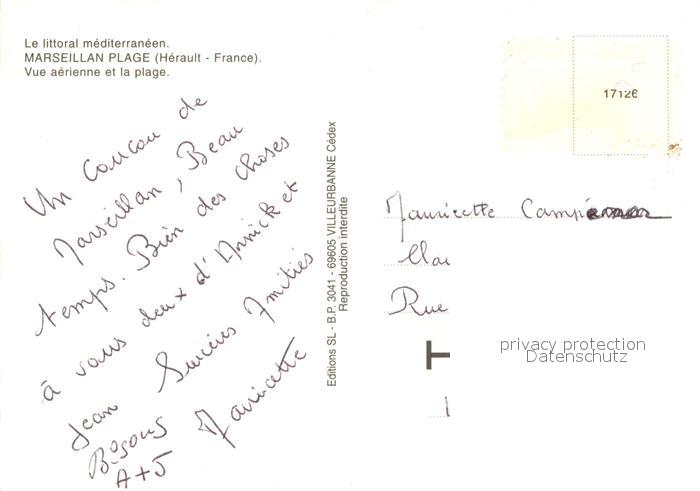 Le littoral méditerranéen.
MARSEILLAN PLAGE (Hérault - France).
Vue aérienne et la plage.
Un coucou de
Marseillan, Beau
temps. Bien des choses
à vous deux d'Annick et
Jean Sincères Amitiés
Bisous Mauricette
A+J
Editions SL - B.P. 3041 - 69605 VILLEURBANNE Cédex
Reproduction interdite
1712€
Mauricette
Rue
privacy protection
Datenschutz